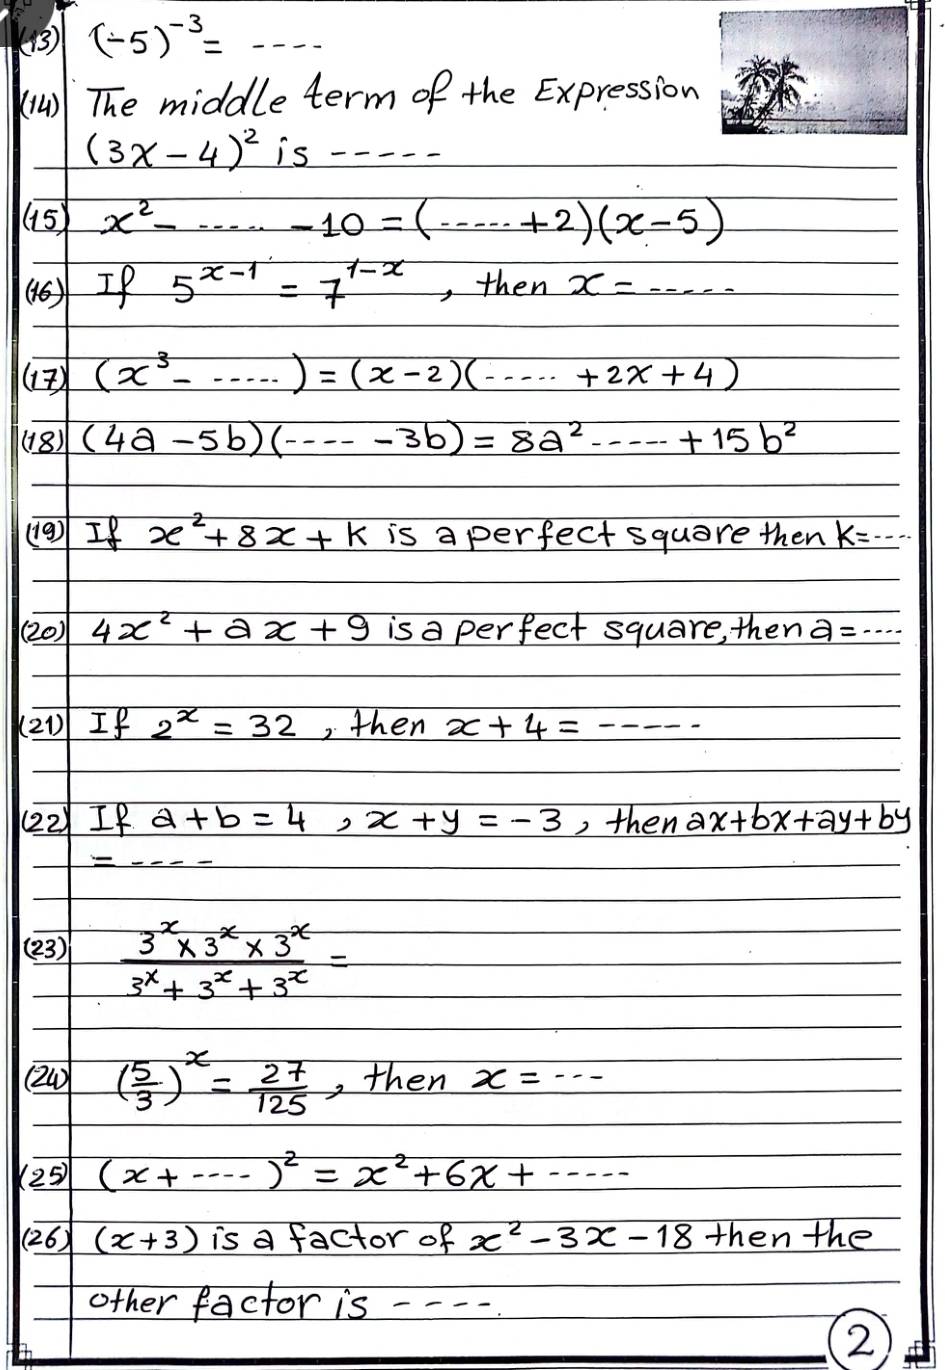 (13) (-5)⁻³ = ----
(14) The middle term of the Expression
(3x - 4)² is -----
(15) x² - ----- - 10 = (----- + 2)(x - 5)
(16) If 5ˣ⁻¹ = 7¹⁻ˣ , then x = -----
(17) (x³ - -----) = (x - 2)(----- + 2x + 4)
(18) (4a - 5b)(---- - 3b) = 8a² ----- + 15b²
(19) If x² + 8x + k is a perfect square then k = ----
(20) 4x² + ax + 9 is a perfect square, then a = ----
(21) If 2ˣ = 32 , then x + 4 = -----
(22) If a + b = 4 , x + y = -3 , then ax+bx+ay+by
= ----
(23) (3ˣ × 3ˣ × 3ˣ) / (3ˣ + 3ˣ + 3ˣ) =
(24) (5/3)ˣ = 27/125 , then x = ---
(25) (x + ----)² = x² + 6x + -----
(26) (x+3) is a factor of x² - 3x - 18 then the
other factor is ----.
2